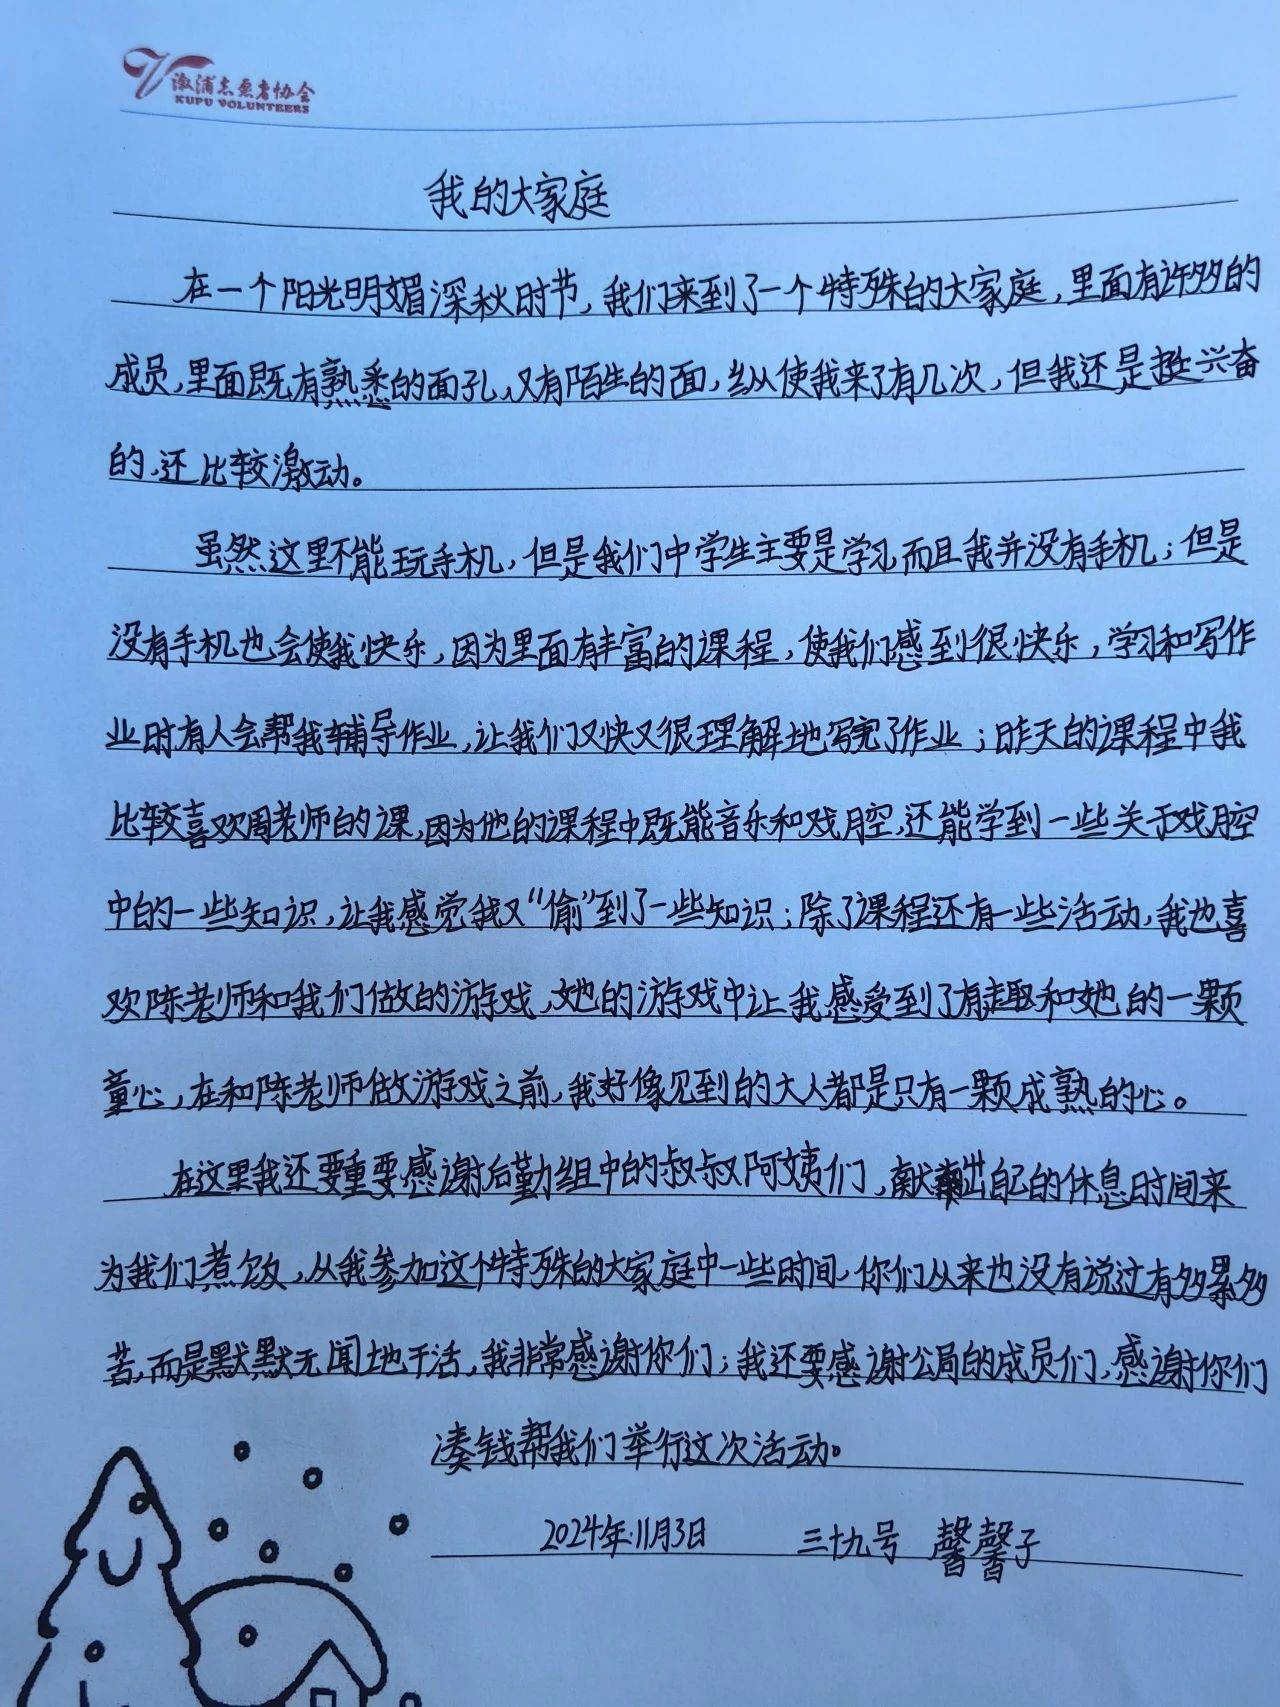 溆浦志愿者协会
XUPU VOLUNTEERS
我的大家庭
在一个阳光明媚深秋时节，我们来到了一个特殊的大家庭，里面有许多的
成员，里面既有熟悉的面孔，又有陌生的面，纵使我来了有几次，但我还是挺兴奋
的，还比较激动。
虽然这里不能玩手机，但是我们中学生主要是学习，而且我并没有手机；但是
没有手机也会使我快乐，因为里面有丰富的课程，使我们感到很快乐，学习和写作
业时有人会帮我辅导作业，让我们又快又很理解地写完了作业；昨天的课程中我
比较喜欢周老师的课，因为他的课程中既能音乐和戏腔，还能学到一些关于戏腔
中的一些知识，让我感觉我又“偷”到了一些知识；除了课程还有一些活动，我也喜
欢陈老师和我们做的游戏，她的游戏中让我感受到了有趣和她的一颗
童心，在和陈老师做游戏之前，我好像见到的大人都是只有一颗成熟的心。
在这里我还要重要感谢后勤组中的叔叔阿姨们，献出自己的休息时间来
为我们煮饭，从我参加这个特殊的大家庭中一些时间，你们从来也没有说过有多累多
苦，而是默默无闻地干活，我非常感谢你们；我还要感谢公局的成员们，感谢你们
凑钱帮我们举行这次活动。
2024年11月3日 三十九号 馨馨子